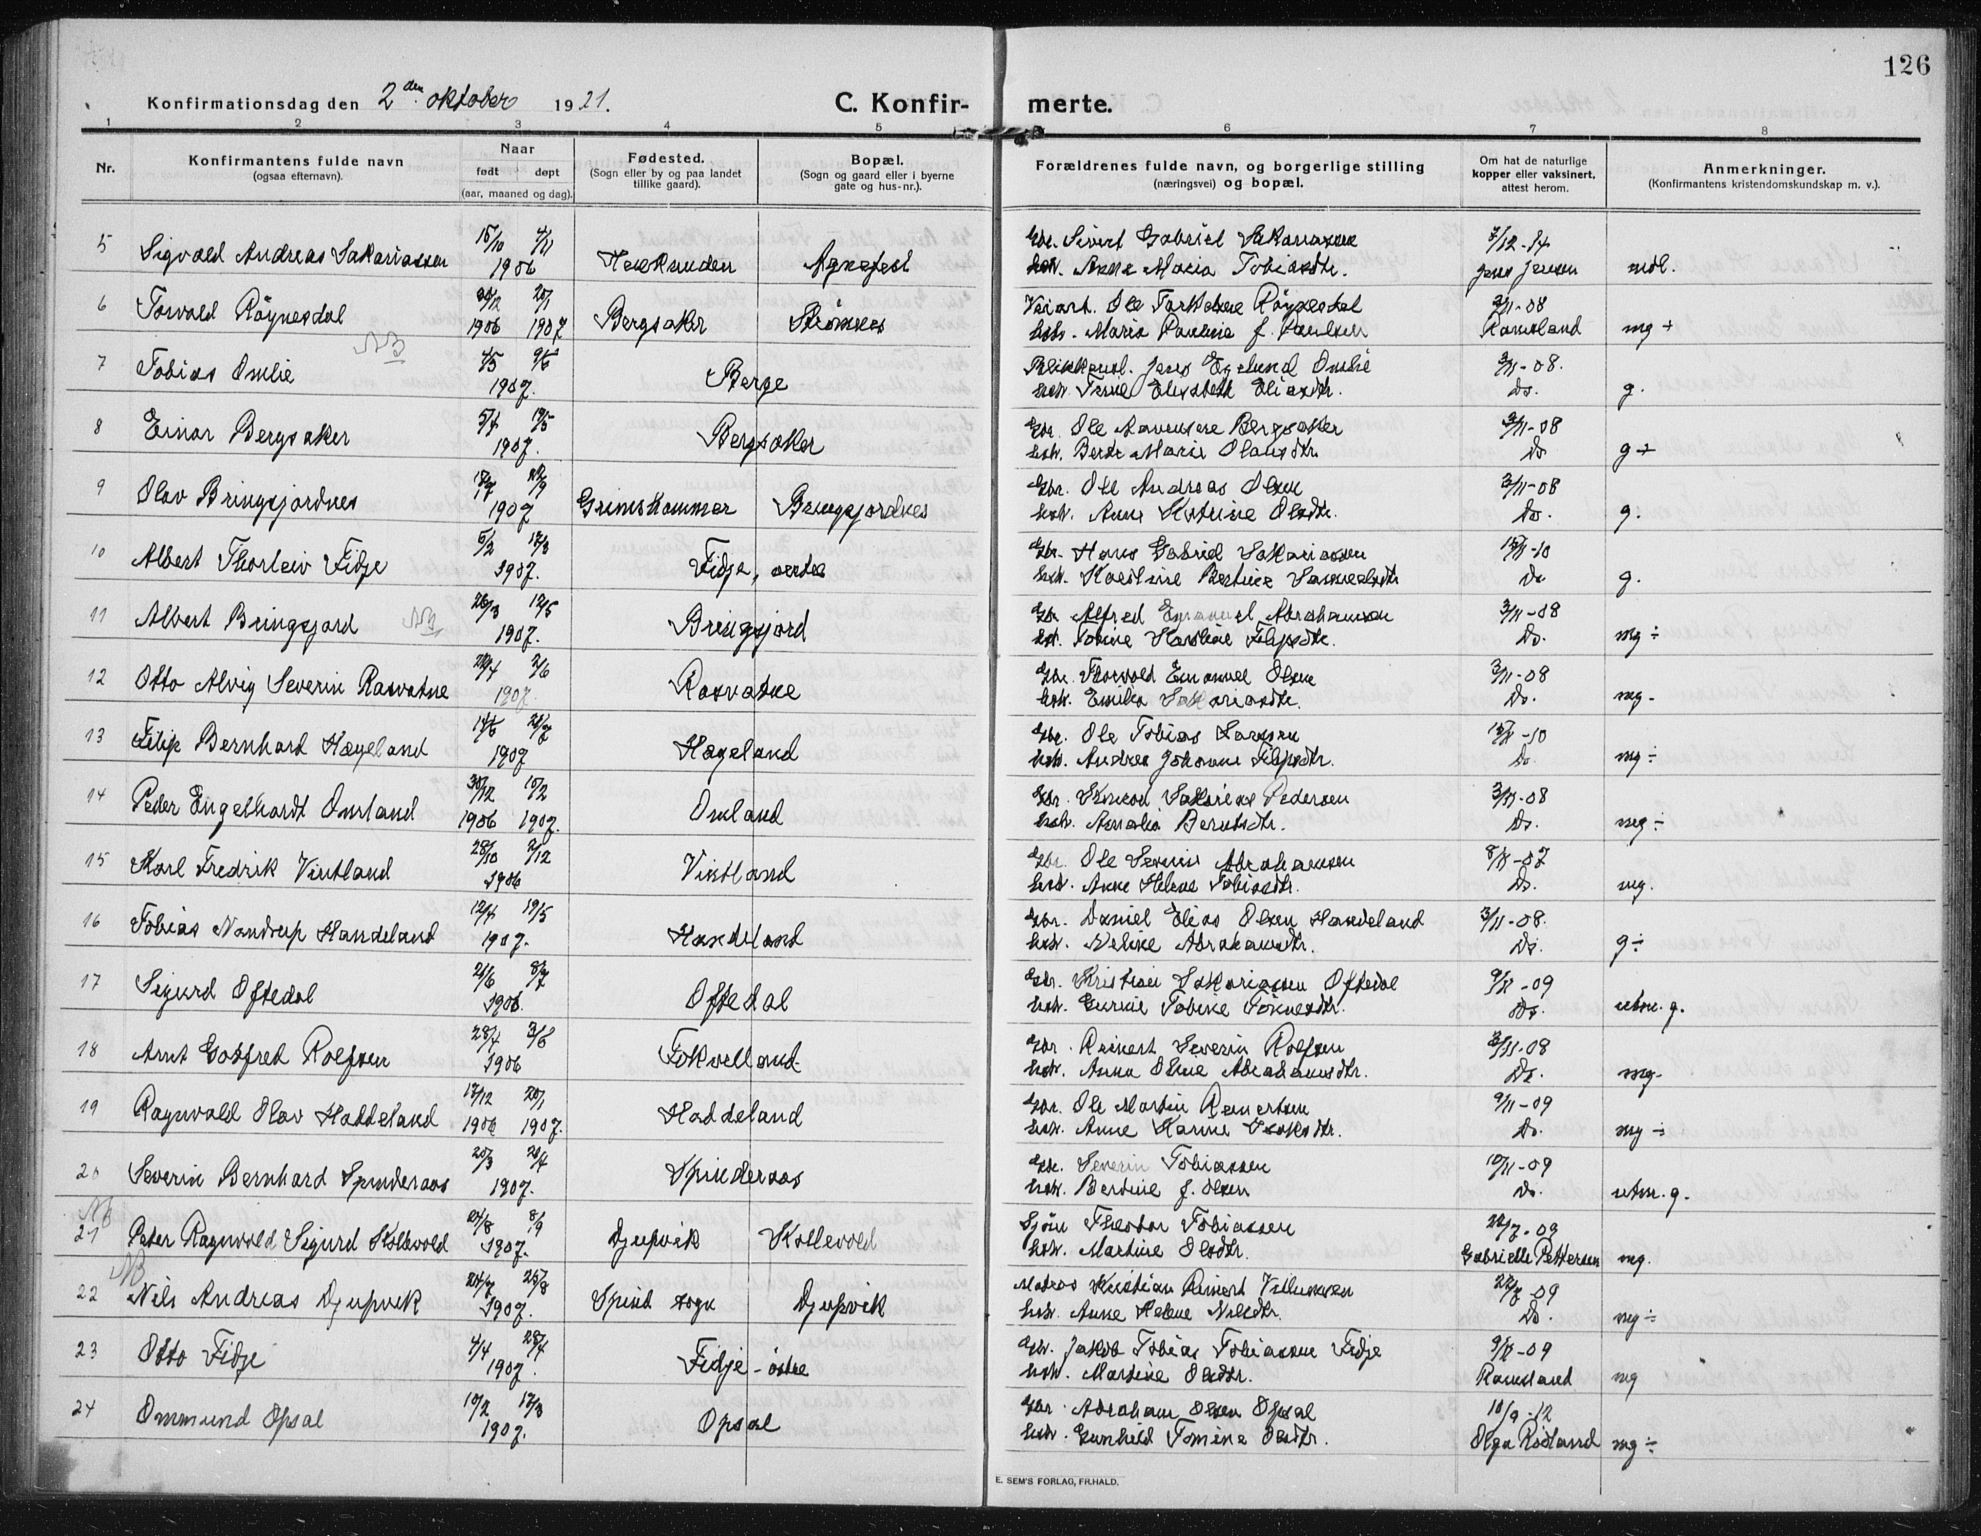 126
Konfirmationsdag den 2den oktober 1921.
C. Konfirmerte.
1 2 3 4 5 6 7 8
Nr.
Konfirmantens fulde navn
(ogsaa efternavn).
Naar
født døpt
(aar, maaned og dag).
Fødested.
(Sogn eller by og paa landet
tillike gaard).
Bopæl.
(Sogn og gaard eller i byerne
gate og hus-nr.).
Forældrenes fulde navn, og borgerlige stilling
(næringsvei) og bopæl.
Om hat de naturlige
kopper eller vaksinert,
attest herom.
Anmerkninger.
(Konfirmantens kristendomskundskap m. v.).
5 Sigvald Andreas Sakariassen 15/10 4/11 1906 Agnefest
Gbr. Sivert Gabriel Sakariassen 7/12-14
hst. Anne Maria Tobiasdtr. Jens Jensen mdl.
6 Torvald Röynesdal 30/12 20/1 1906 1907 Bergsaker Strömnes
Ole Torkelsen Röynesdal 3/11-08
hst. Maria Pauline f. Paulsen Ramsland mg +
NB
7 Tobias Omlie 4/3 9/5 1907. Berge
Jens Egelund Omlie 3/11-08.
hst. Terne Elisabeth Eliasdtr. Do. g.
8 Einar Bergsaker 5/4 19/5 1907. Bergsaker
Gbr. Ole Aanensen Bergsaker 3/11-08
hst. Berte Marie Olausdtr. Do g +
9 Olav Bringsjordnes 1907 Grimshammer Bringsjordnes
Gbr. Ole Andreas Olsen 3/11-08
hst. Anne Katrine Olsdtr. Do. g.
10 Albert Thorleiv Fidje 5/2 17/3 1907. Fidje, nedre
Gbr. Hans Gabriel Sakariassen 15/11-10
hst. Karoline Bertine Samuelsdtr Do g.
11 Albert Bringsjord NB. 26/3 12/5 1907. Bringsjord
Gbr Alfred Emanuel Abrahamsen 3/11-08
hst. Tobine Haraline Filipsdtr. Do. mg ÷
12 Otto Alvig Severin Rosvatne 28/4 2/6 1907. Rosvatne
Gbr. Thorvald Emanuel Olsen 3/11-08
hst. Emilia Sakariasdtr. Do. mg -
13 Filip Bernhard Hægeland 14/6 21/7 1907 Hægeland
Gbr. Ole Tobias Larssen 15/11-10
hst. Andrea Johanne Filipsdtr. Do. mg ÷
14 Peder Engelhardt Omland 30/12 10/2 1906 1907. Omland
Gbr. Simeon Sakarias Pedersen 3/11-08
hst. Amalia Berntsdtr. Do. mg ÷
15 Karl Fredrik Vintland 28/10 2/12 1906 Vintland
Gbr. Ole Severin Abrahamsen 8/11-07
hst. Anne Helene Tobiasdtr. Do. mg.
16 Tobias Nandrup Handeland 12/4 19/5 1907. Handeland
Gbr. Daniel Elias Olsen Handeland 3/11-08.
hst. Neline Abrahamsdtr. Do. g ÷
17 Sigurd Oftedal 21/6 8/7 1906. Oftedal
Gbr. Kristian Sakariassen Oftedal 9/11-09
hst. Gurine Tobine Tönnesdtr. Do. utm. g.
18 Arnt Gotfred Rolfsen 28/4 3/6 1906 Fokselland
Gbr. Reinert Severin Rolfsen 3/11-08
hst. Anna Oline Abrahamsdtr. Do. mg-
19 Ragnvald Olav Haddeland 17/12 20/1 1906 1907. Haddeland
Gbr. Ole Martin Reinertsen 9/11-09
hst. Anne Karine Isaksdtr. Do. mg ÷
20 Severin Bernhard Spinderaas 20/3 21/4 1907. Spinderaas
Gbr. Severin Tobiassen 10/11-09
hst. Bertine f. Olsen Do. utm. g.
NB
21 Peter Ragnvald Sigurd Kollevold 24/8 8/9 1907. Djupvik Kollevold
Sjöm Theodor Tobiassen 22/7-09
hst. Martine Olsdtr. Gabrielle Pettersen mg.
NB
22 Nils Andreas Djupvik 24/7 25/8 1907. Spind sogn Djupvik
Matros Kristian Reinert Villumsen 22/7-09
hst. Anne Helene Nilsdtr. Do. mg ÷
23 Otto Fidje 4/4 28/4 1907. Fidje - östre
Gbr. Jakob Tobias Tobiassen Fidje 9/11-09
hst. Martine Olsdtr. Ramsland mg
24 Ommund Opsal 10/2 17/3 1907. Opsal
Gbr. Abraham Olsen Opsal 10/9-12
hst. Gunhild Tomine Olsdtr. Olga Rödland mg ÷
E. SEM'S FORLAG, FR.HALD.